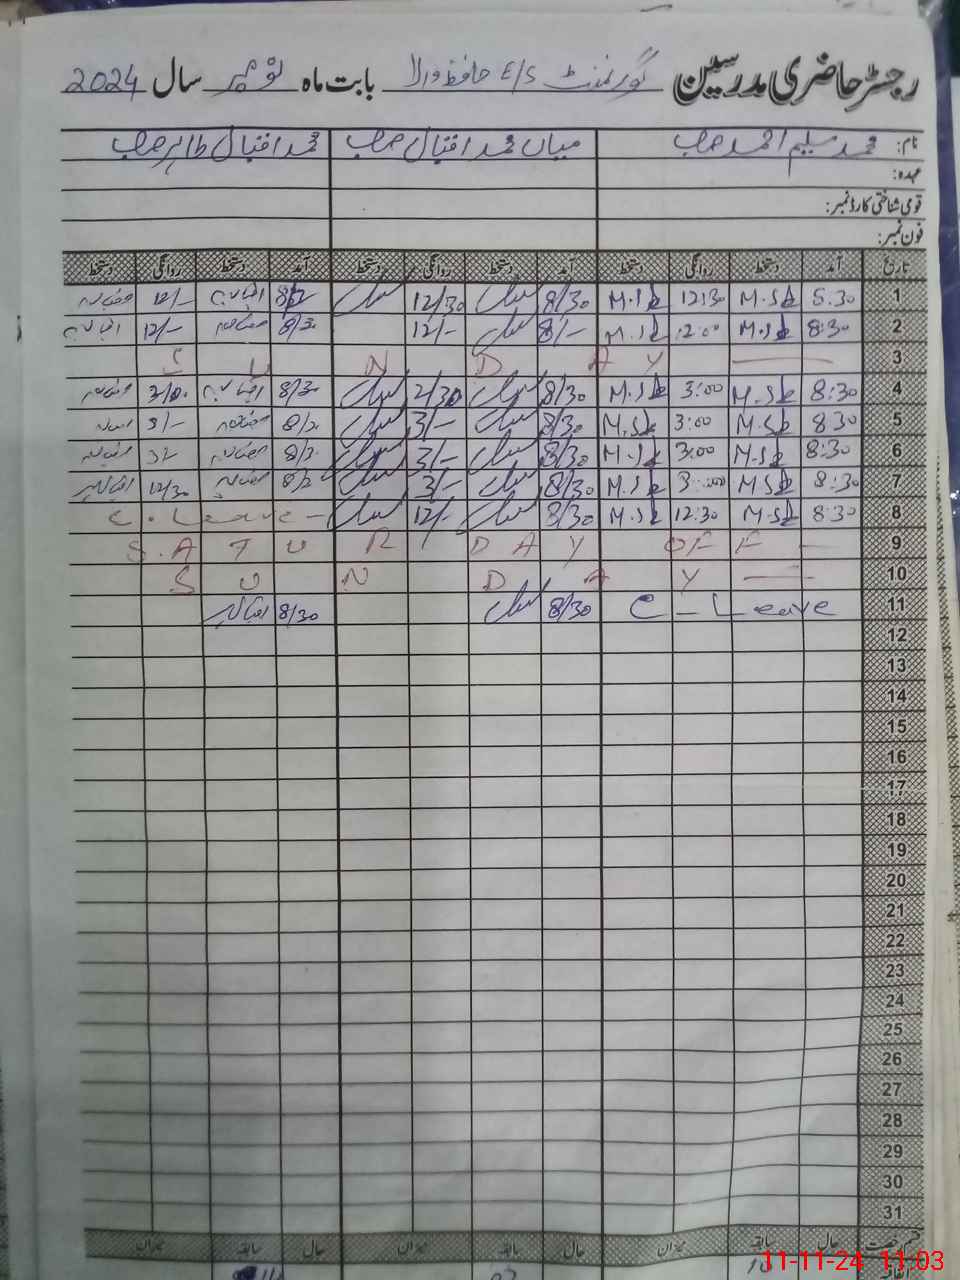 رجسٹر حاضری مدرسین گورنمنٹ E/S حافظ والا بابت ماہ نومبر سال 2024
نام: محمد سلیم احمد صاحب میاں محمد اقبال صاحب محمد اقبال طاہر صاحب
عہدہ:
قومی شناختی کارڈ نمبر:
فون نمبر:
تاریخ آمد دستخط روانگی دستخط آمد دستخط روانگی دستخط آمد دستخط روانگی دستخط
1 8:30 M.S 12:30 M.S 8/30 12/30 12/-
2 8:30 M.S 12:00 M.S 8/- 12/- 8/30 12/-
3 S U N D A Y
4 8:30 M.S 3:00 M.S 8/30 2/30 8/30
5 8:30 M.S 3:00 M.S 8/30 3/- 3/-
6 8:30 M.S 3:00 M.S 8/30 3/-
7 8:30 M.S 3:00 M.S 8/30 3/- 12/30
8 8:30 M.S 12:30 M.S 8/30 12/- C. Leave -
9 S.A T U R D A Y OF F -
10 S U N D A Y
11 C - Leave 8/30 8/30
12
13
14
15
16
17
18
19
20
21
22
23
24
25
26
27
28
29
30
31
قسم رخصت حال سابقہ میزان حال سابقہ میزان حال سابقہ میزان
اتفاقیہ
11-11-24 11:03